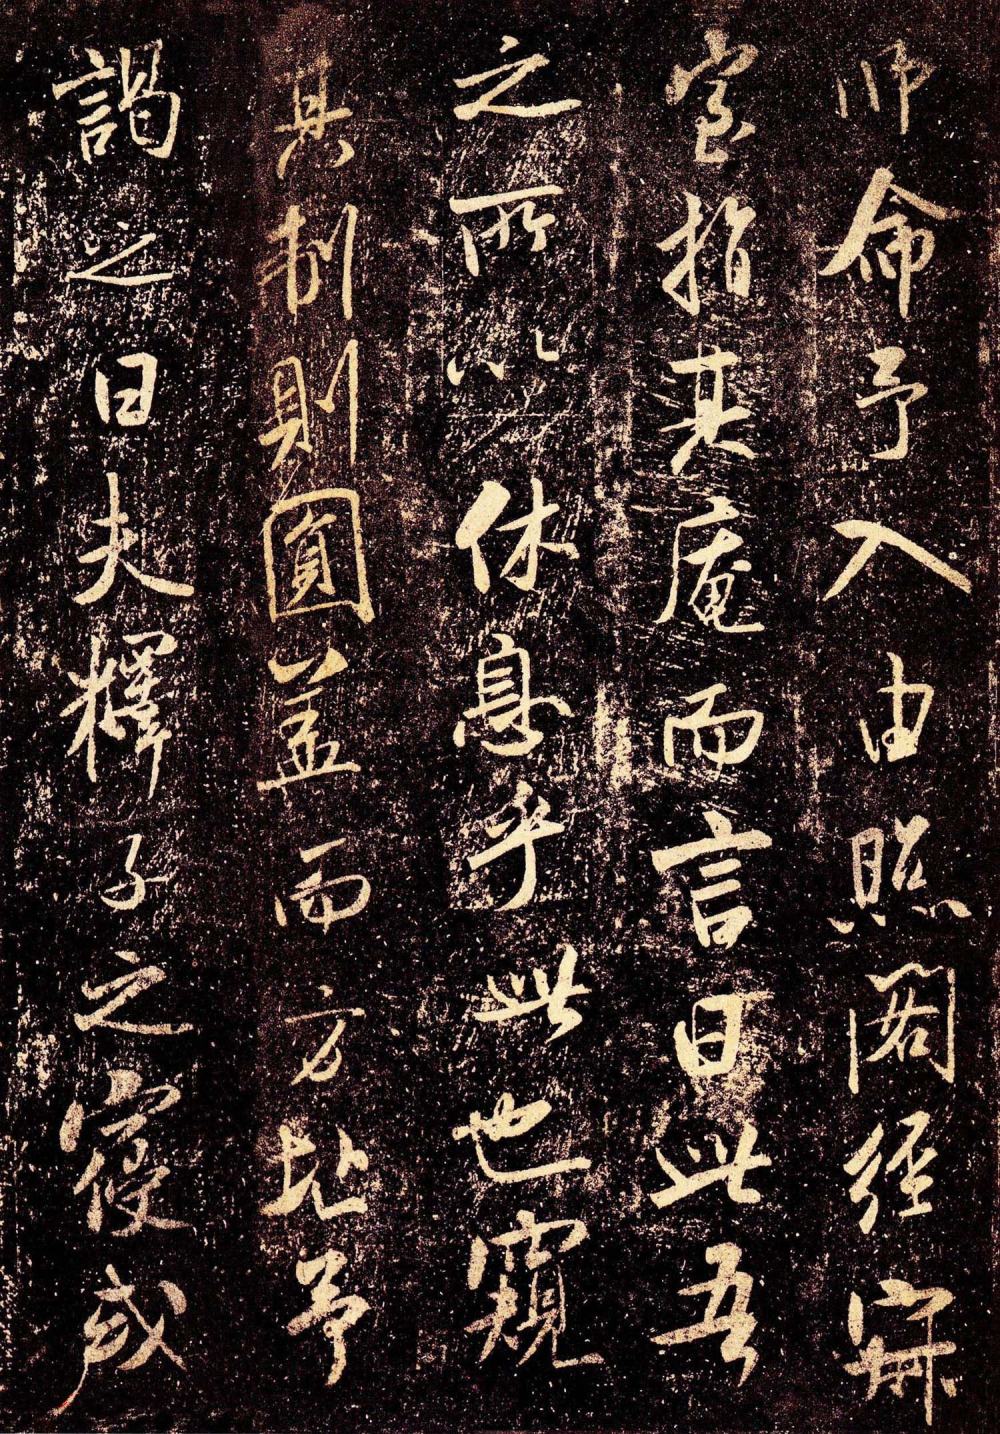 師命予入由照閣經寂
室指其庵而言曰此吾
之所以休息乎此也窺
其制則圓蓋而方址予
謁之曰夫釋子之寢或